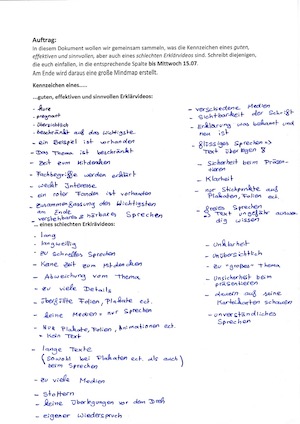 Auftrag:
In diesem Dokument wollen wir gemeinsam sammeln, was die Kennzeichen eines guten,
effektiven und sinnvollen, aber auch eines schlechten Erklärvideos sind. Schreibt diejenigen,
die euch einfallen, in die entsprechende Spalte bis Mittwoch 15.07.
Am Ende wird daraus eine große Mindmap erstellt.
Kennzeichen eines.....
...guten, effektiven und sinnvollen Erklärvideos:
- kurz
- prägnant
- übersichtlich
- beschränkt auf das Wichtigste
- ein Beispiel ist vorhanden
- Das Thema ist beschränkt
- Zeit zum Mitdenken
- Fachbegriffe werden erklärt
- weckt Interesse
- ein roter Faden ist vorhanden
- Zusammenfassung des Wichtigsten
am Ende
- verstehbares & hörbares Sprechen
- verschiedene Medien
- Sichtbarkeit der Schrift
- Erklärung was bekannt und
neu ist
- flüssiges Sprechen →
Text überlegen
- Sicherheit beim Präsen-
tieren
- Klarheit
- nur Stichpunkte auf
Plakaten, Folien ect.
- freies Sprechen
→ Text ungefähr auswen
dig wissen
... eines schlechten Erklärvideos:
- lang
- langweilig
- zu schnelles Sprechen
- Keine Zeit zum Mitdenken
- Abweichung vom Thema
- zu viele Details
- überfüllte Folien, Plakate ect.
- keine Medien - nur Sprechen
- Nur Plakate, Folien, Animationen ect.
→ kein Text
- lange Texte
(sowohl bei Plakaten ect. als auch)
beim Sprechen
- zu viele Medien
- Stottern
- keine Überlegungen vor dem Dreh
- eigener Wiederspruch
- Unklarheit
- Unübersichtlich
- zu "großes" Thema
- Unsicherheit beim
präsentieren
- dauernd auf seine
Karteikarten schauen
- unverständliches
Sprechen